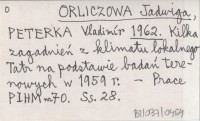 o ORLICZOWA Jadwiga,
PETERKA Vladimír 1962. Kilka
zagadnień z klimatu lokalnego
Tatr na podstawie badań tere-
nowych w 1959 r. – Prace
PIHM n70. Ss. 28.
BI/037/0459